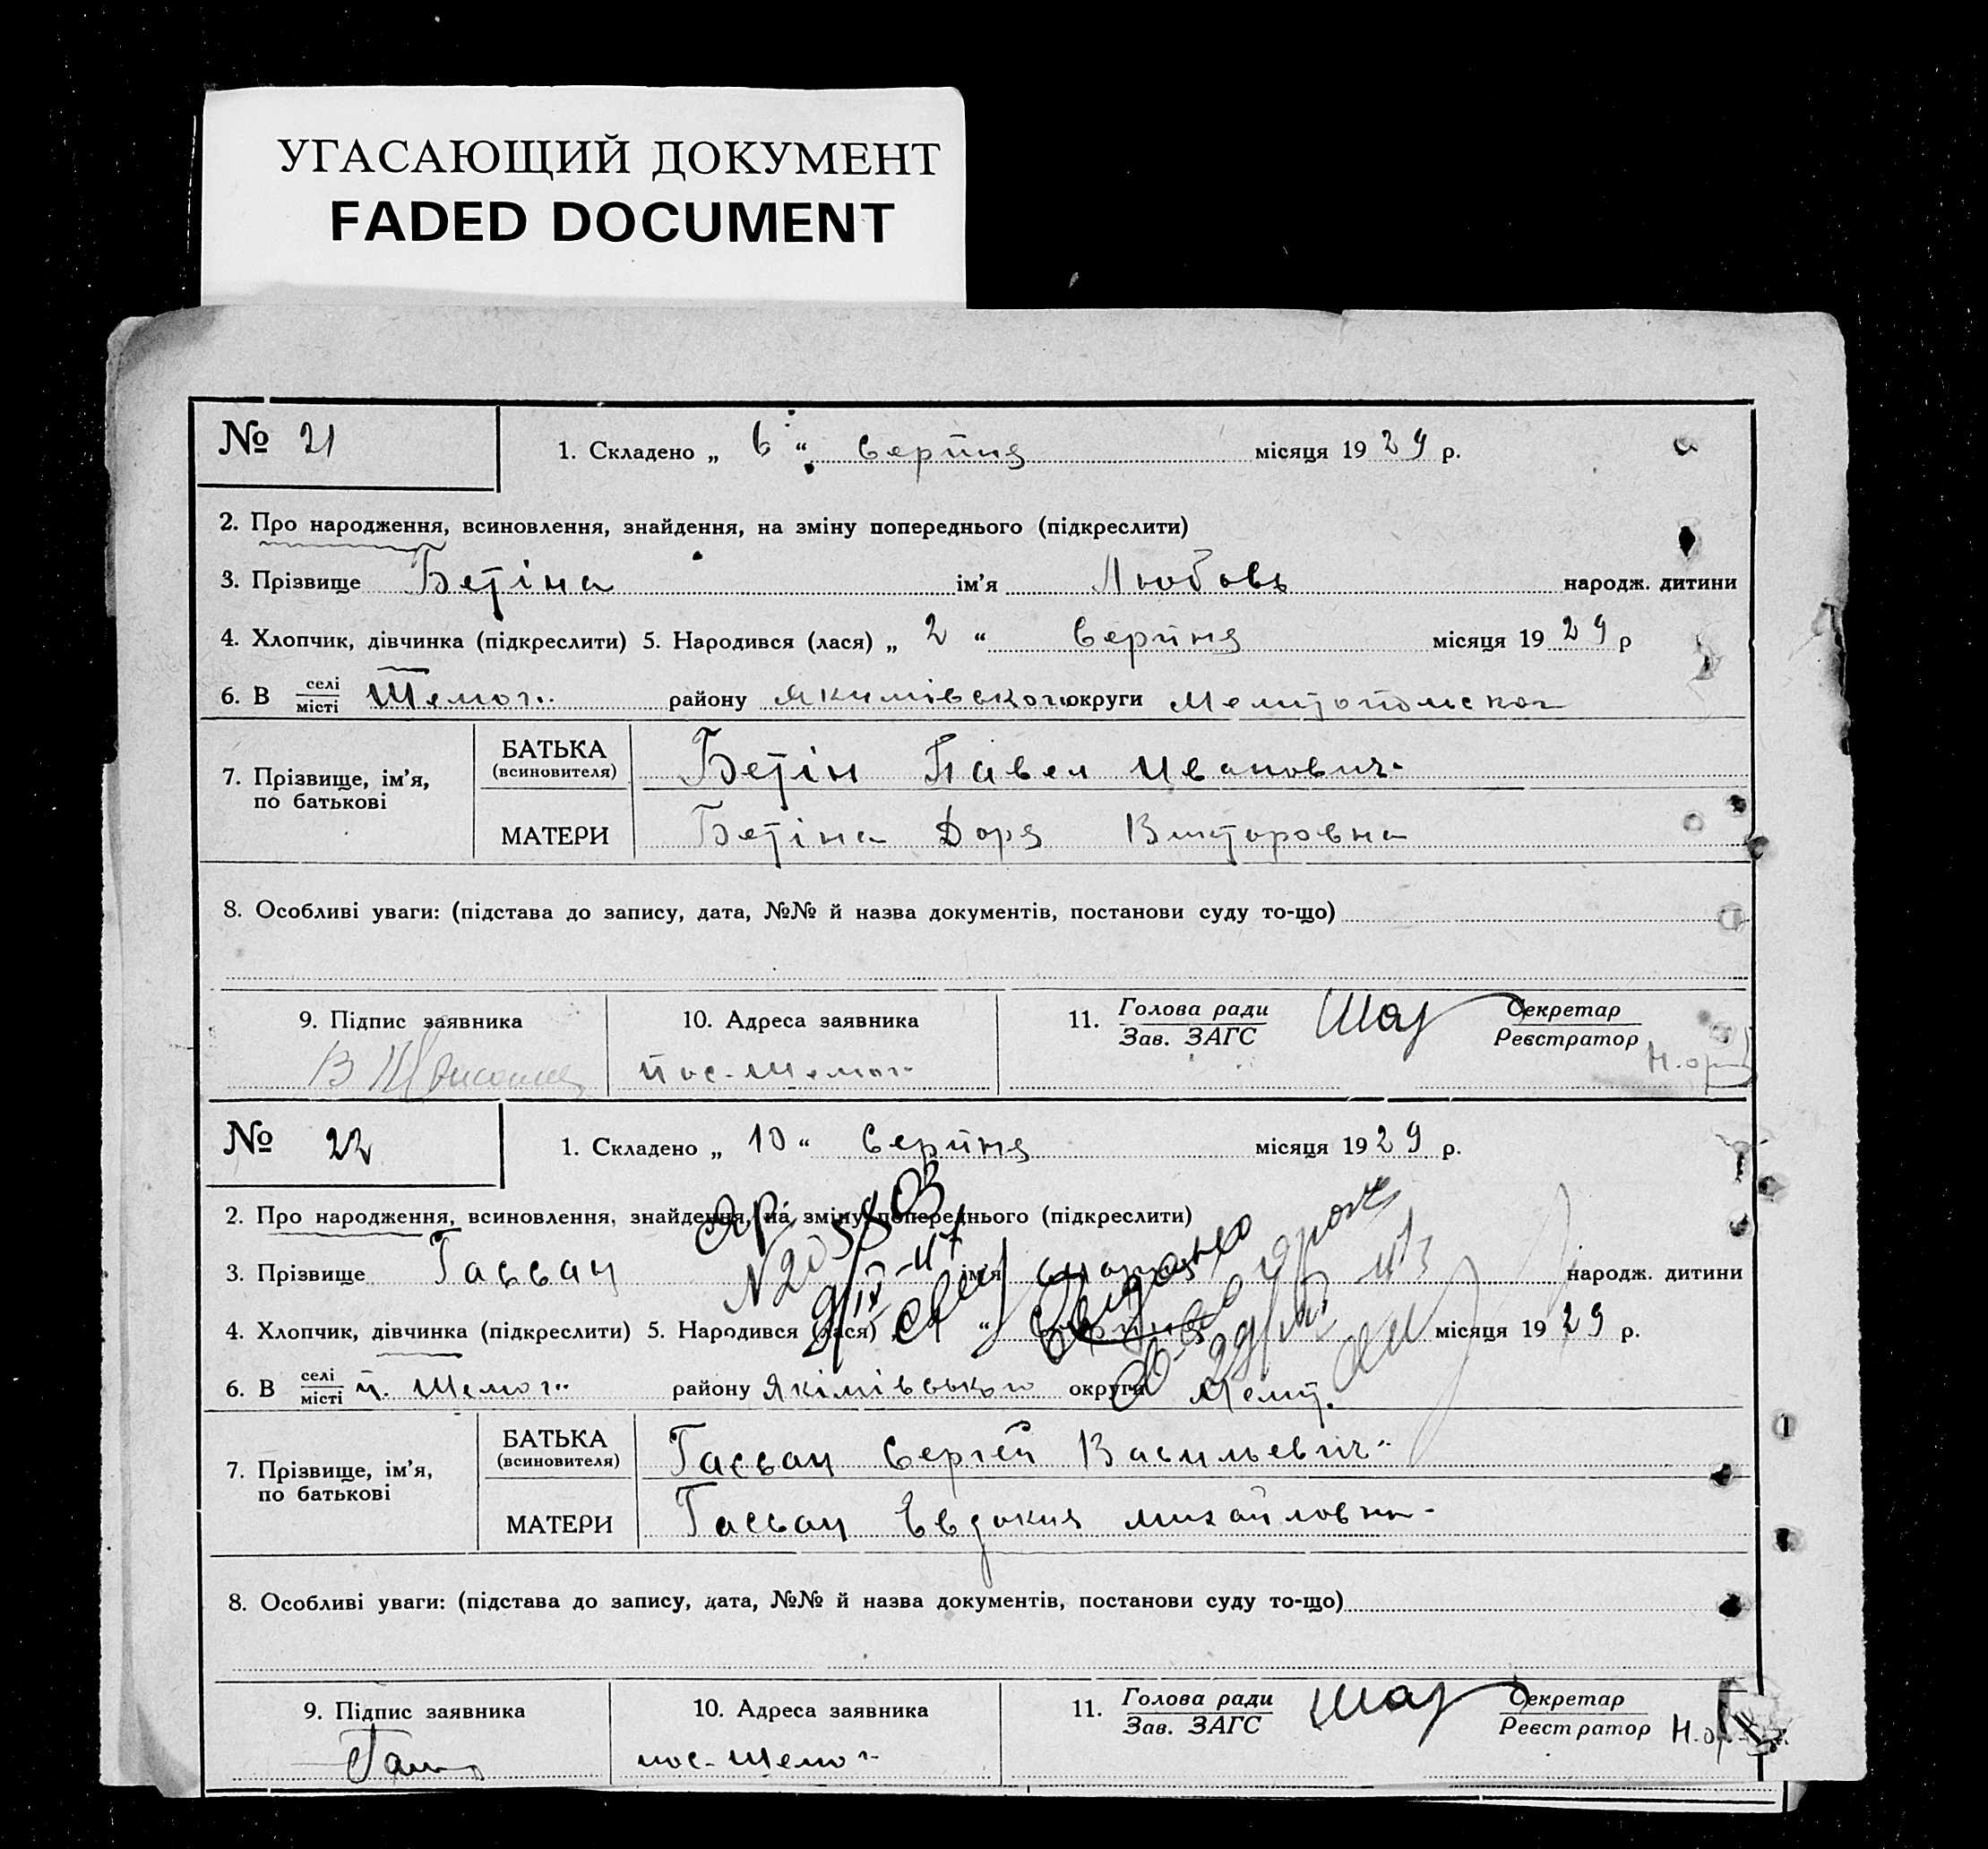 УГАСАЮЩИЙ ДОКУМЕНТ
FADED DOCUMENT
№ 21
1. Складено „ 6 “ Серпня місяця 1929 р.
2. Про народження, всиновлення, знайдення, на зміну попереднього (підкреслити)
3. Прізвище Бетіна ім'я Любовь народж. дитини
4. Хлопчик, дівчинка (підкреслити) 5. Народився (лася) „ 2 “ Серпня місяця 1929 р
6. В селі місті Шемог.. району Якимівского округи Мелитопольског
7. Прізвище, ім'я, по батькові
БАТЬКА (всиновителя) Бетін Павел Иванович
МАТЕРИ Бетіна Доря Викторовна
8. Особливі уваги: (підстава до запису, дата, №№ й назва документів, постанови суду то-що)
9. Підпис заявника
10. Адреса заявника пос. Шемог
11. Голова ради Зав. ЗАГС Шар Секретар Реєстратор
№ 22
1. Складено „ 10 “ Серпня місяця 1929 р.
2. Про народження, всиновлення, знайдення, на зміну попереднього (підкреслити)
3. Прізвище Гассан ім'я народж. дитини
4. Хлопчик, дівчинка (підкреслити) 5. Народився (лася) “ місяця 1929 р.
6. В селі місті п. Шемог.. району Якімівського округи Мелит.
7. Прізвище, ім'я, по батькові
БАТЬКА (всиновителя) Гассан Сергей Васильевич
МАТЕРИ Гассан Евдокия Михайловна
8. Особливі уваги: (підстава до запису, дата, №№ й назва документів, постанови суду то-що)
9. Підпис заявника
10. Адреса заявника пос. Шемог
11. Голова ради Зав. ЗАГС Шар Секретар Реєстратор